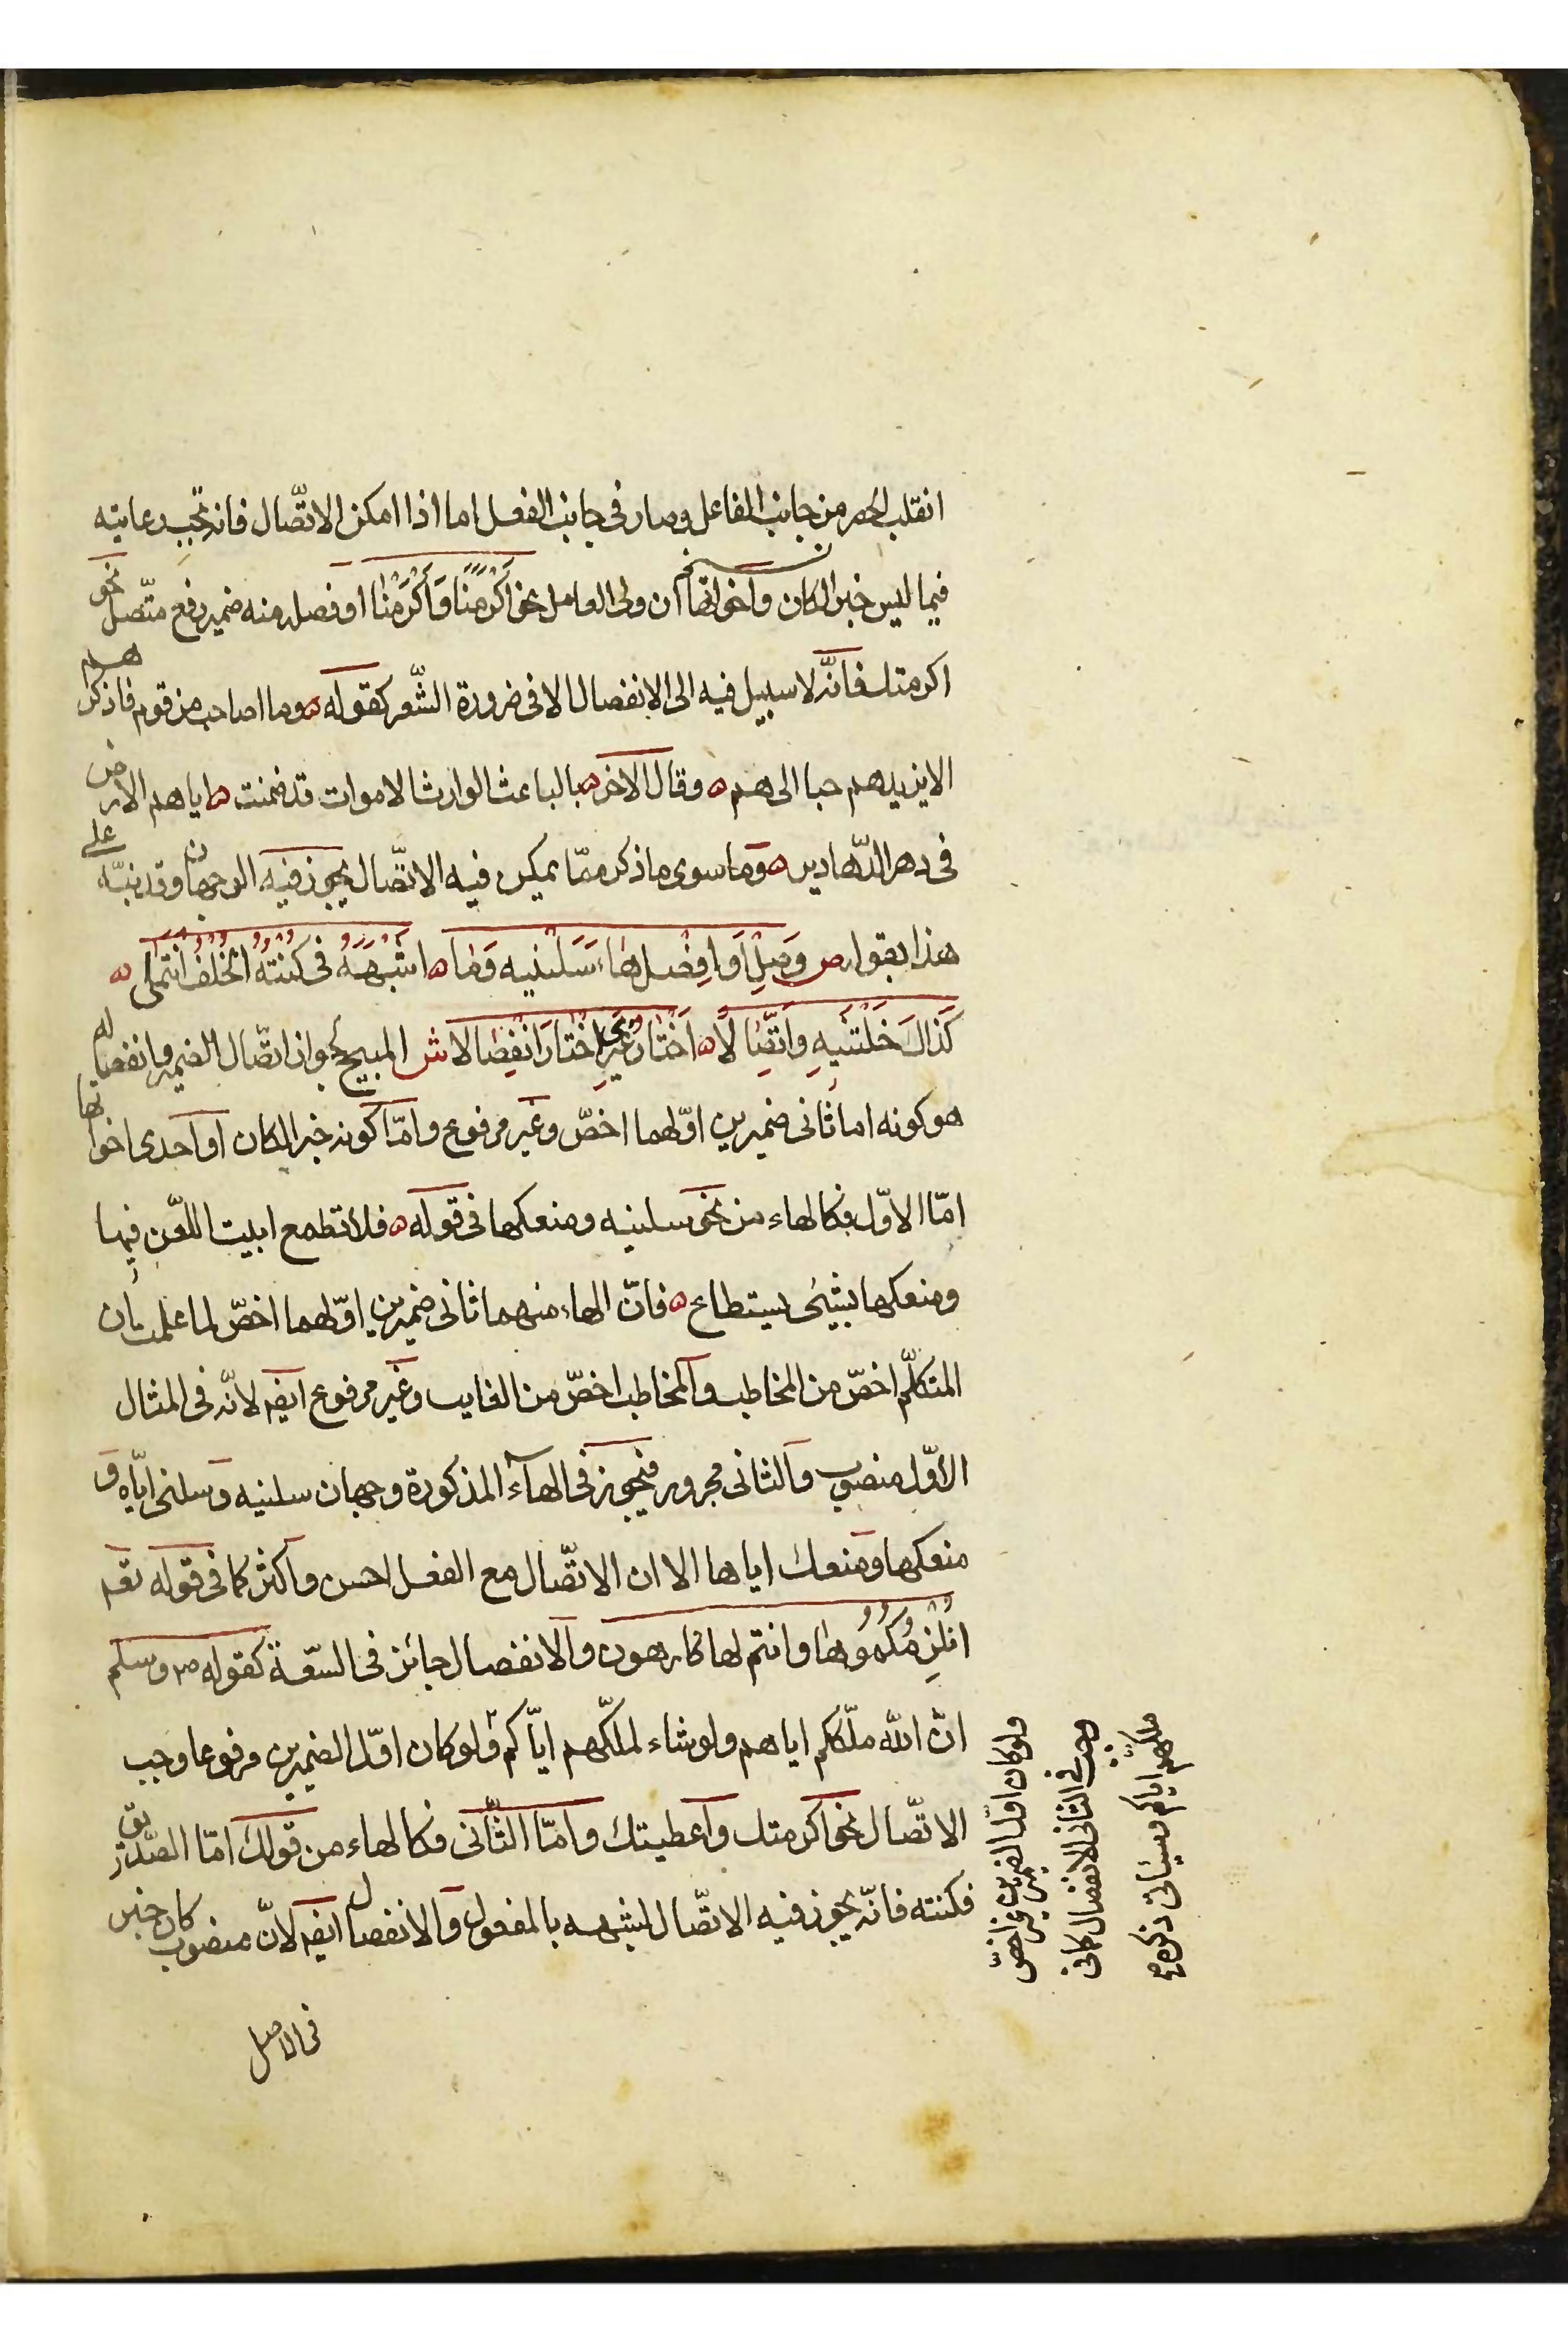 انقلب الحصر من جانب الفاعل وصار فى جانب الفعل اما اذا امكن الاتّصال فانه تجب رعايته
فيما ليس خبرا لكان وأخواتها ان ولى العامل نحو أَكْرَمَنَا وَأَكْرَمْنَا او فصله منه ضمير رفع متّصل نحو
اكرمتك فانّه لا سبيل فيه الى الانفصال الا فى ضرورة الشّعر كقوله ه وما اصاحب من قوم فاذكرهم
الا يزيدهم حبا الى هم ه وقال الاخر ه بالباعث الوارث الاموات قد ضمنت ه اياهم الارض
فى دهر الدّهادير ه وما سوى ما ذكر ممّا يمكن فيه الاتّصال يجوز فيه الوجهان وقد نبّه على
هذا بقوله ص وَصِلْ أَوِ افْصِلْ هَاءَ سَلْنِيهِ وَمَا ه اَشْبَهَهُ فى كُنْتُهُ الْخُلْفُ انْتَمَى ه
كَذَاكَ خِلْتَنِيهِ وَاتِّصَالَا ه أَخْتَارُ غَيْرِى اخْتَارَ انْفِصَالَا ش المبيح لجواز اتّصال الضمير وانفصاله
هو كونه اما ثانى ضميرين اوّلهما اخصّ وغير مرفوع وامّا كونه خبرا لكان او احدى اخواتها
امّا الاوّل فكالهاء من نحو سلنيه ومنعكها فى قوله ه فلا تطمع ابيت اللعن فيها
ومنعكها بشيئ يستطاع ه فانّ الهاء منهما ثانى ضميرين اوّلهما اخصّ لما علمت بأن
المتكلّم اخصّ من المخاطب والمخاطب اخصّ من الغايب وغير مرفوع ايضه لانّه فى المثال
الاوّل منصوب والثانى مجرور فيجوز فى الهاء المذكورة وجهان سلنيه وسلنى ايّاه و
منعكها ومنعك اياها الا ان الاتّصال مع الفعل احسن واكثر كما فى قوله تعه
انُلْزِمُكُمُوهَا وانتم لها كارهون والانفصال جائز فى السّعة كقوله ص وسلم
انّ الله ملّككم اياهم ولو شاء لملّكهم ايّاكم ولو كان اوّل الضميرين مرفوعا وجب
الاتّصال نحو اكرمتك وأعطيتك وامّا الثّانى فكالهاء من قولك امّا الصّديق
فكنته فانّه يجوز فيه الاتّصال لشبهه بالمفعول والانفصال ايضه لانّ منصوب كان خبر
فى الاصل
ولو كان اوّل الضميرين غير اخصّ
وجب فى الثانى الانفصال كما فى
ملكهم اياكم وسيأتى ذكره